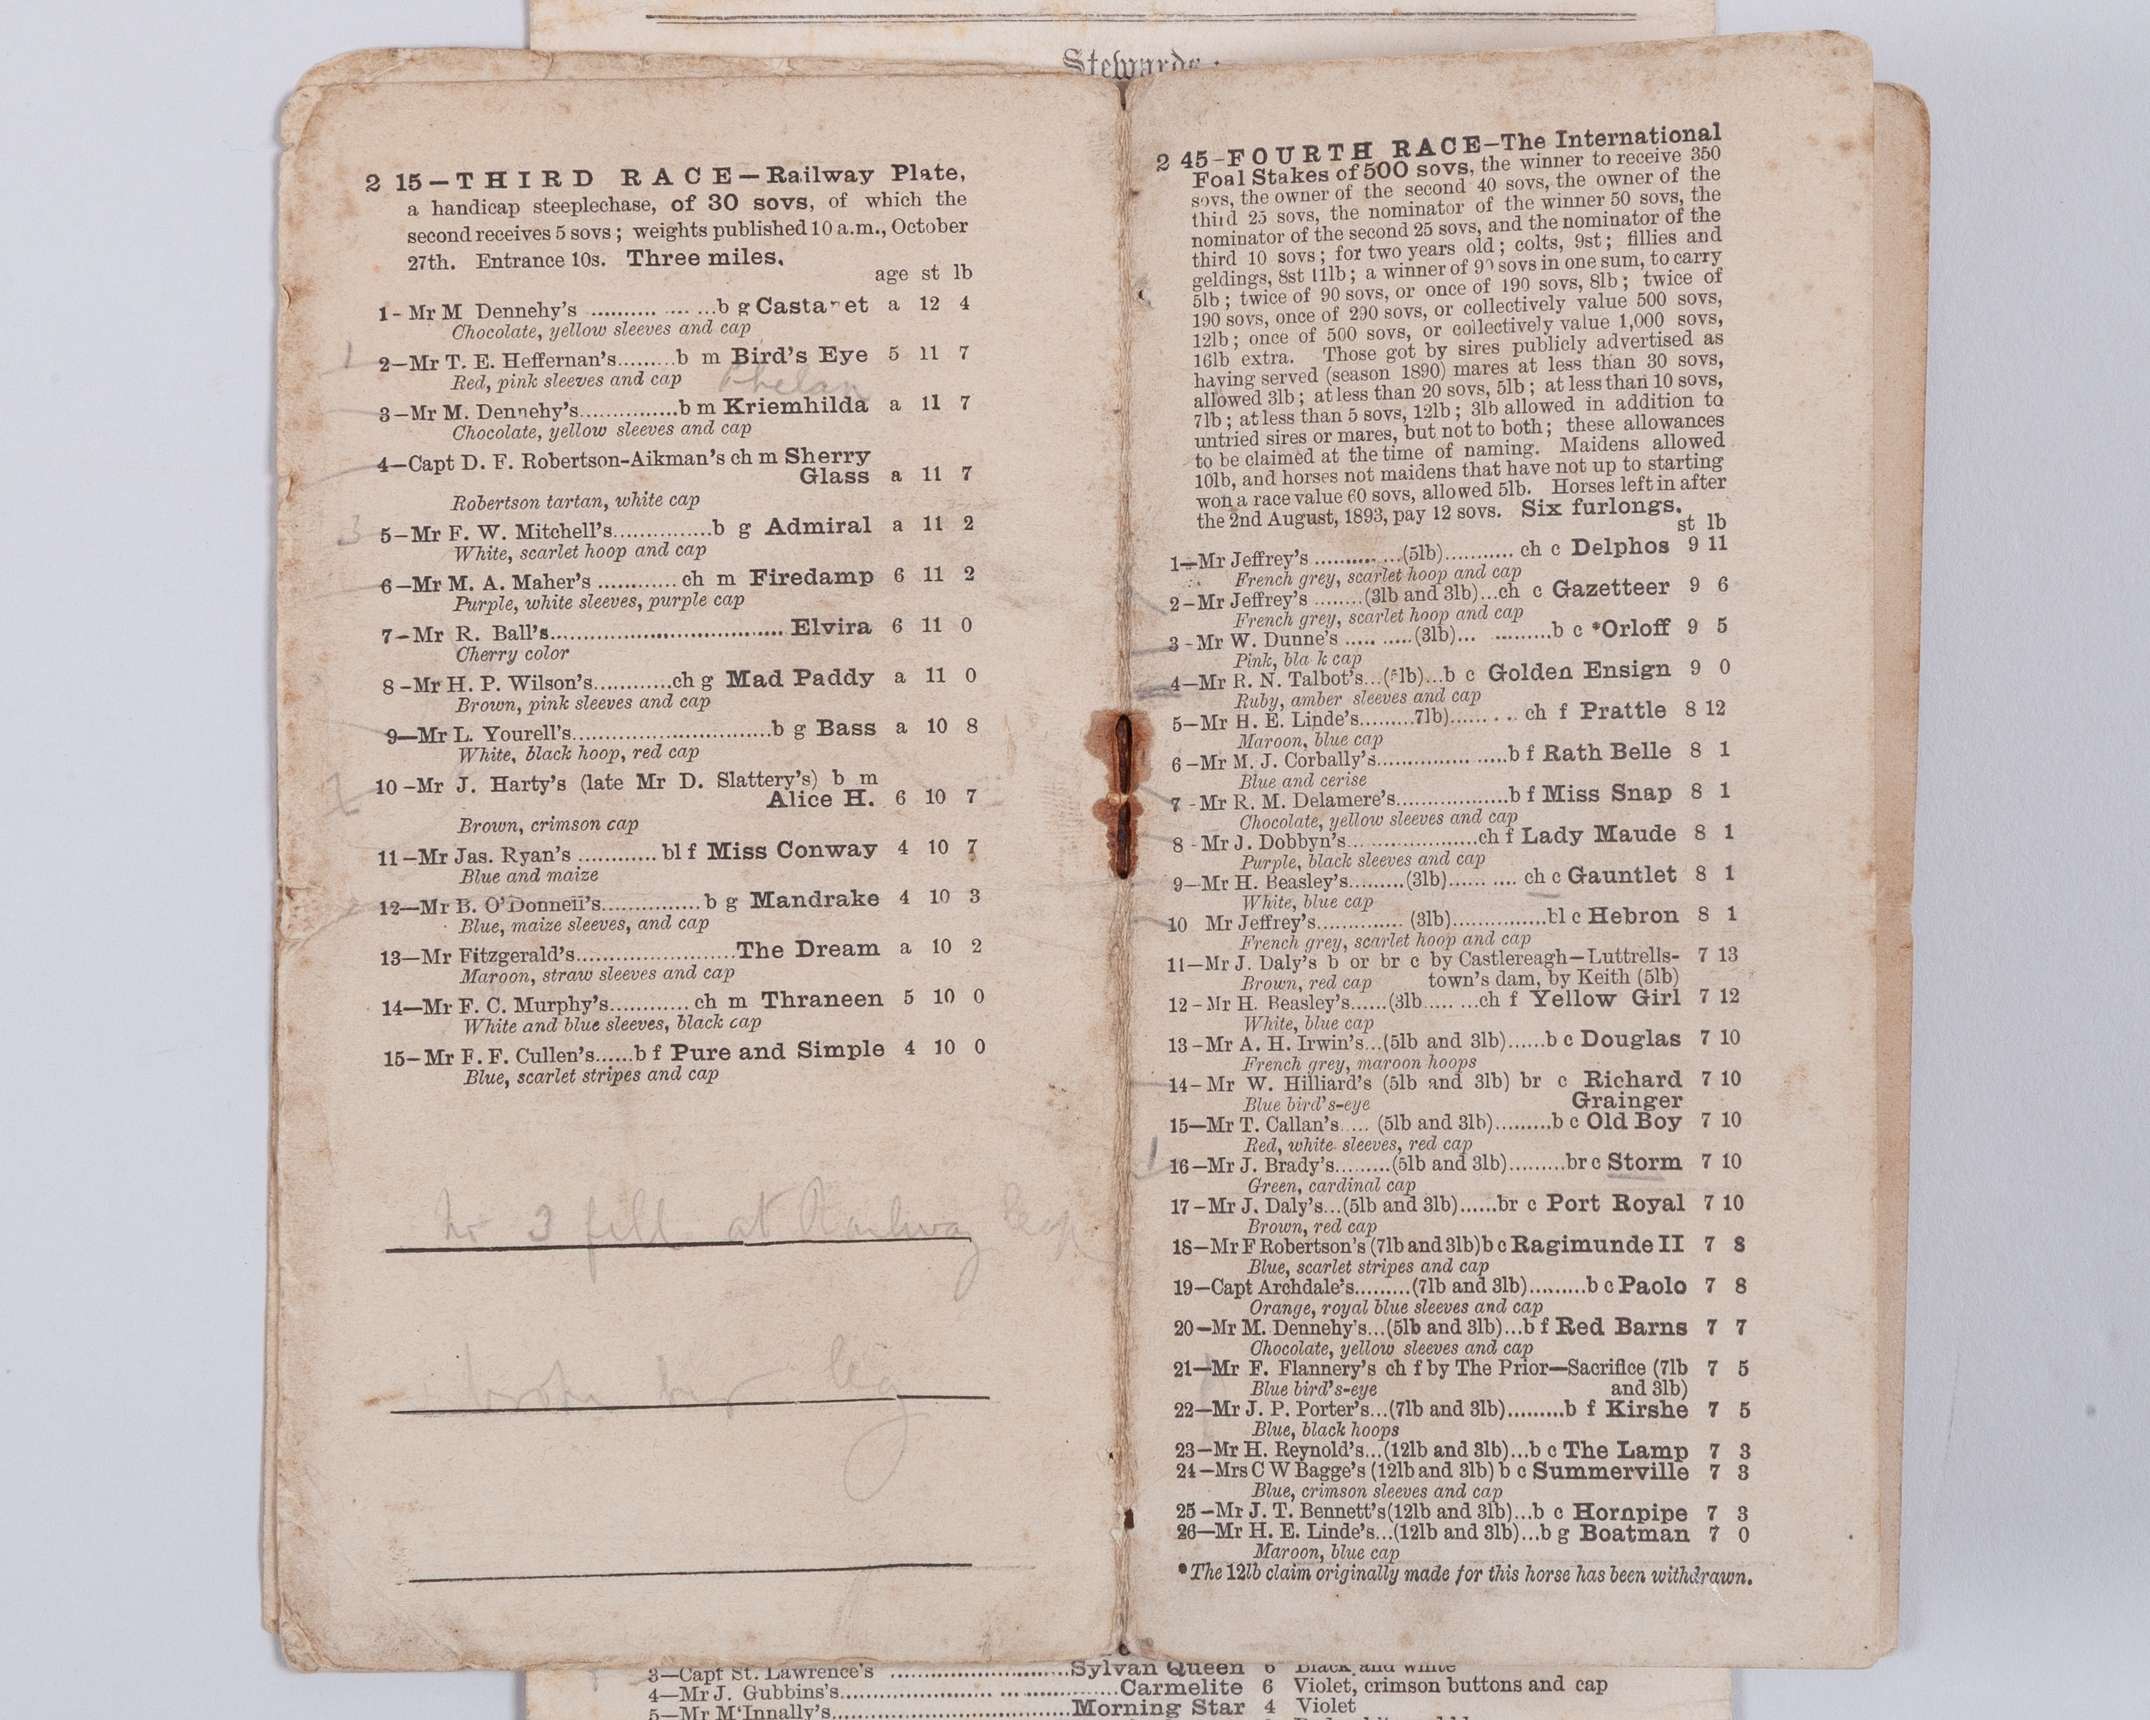 Stewards:
2 15—THIRD RACE—Railway Plate,
a handicap steeplechase, of 30 sovs, of which the
second receives 5 sovs; weights published 10 a.m., October
27th. Entrance 10s. Three miles.
age st lb
1- Mr M Dennehy's .......... .... ...b g Casta et a 12 4
Chocolate, yellow sleeves and cap
1
2—Mr T. E. Heffernan's.........b m Bird's Eye 5 11 7
Red, pink sleeves and cap Phelan
3—Mr M. Dennehy's...............b m Kriemhilda a 11 7
Chocolate, yellow sleeves and cap
4—Capt D. F. Robertson-Aikman's ch m Sherry
Glass a 11 7
Robertson tartan, white cap
3
5—Mr F. W. Mitchell's...............b g Admiral a 11 2
White, scarlet hoop and cap
6—Mr M. A. Maher's ............ ch m Firedamp 6 11 2
Purple, white sleeves, purple cap
7—Mr R. Ball's................................... Elvira 6 11 0
Cherry color
8-Mr H. P. Wilson's............ch g Mad Paddy a 11 0
Brown, pink sleeves and cap
9—Mr L. Yourell's..............................b g Bass a 10 8
White, black hoop, red cap
10-Mr J. Harty's (late Mr D. Slattery's) b m
Alice H. 6 10 7
Brown, crimson cap
11—Mr Jas. Ryan's ............ bl f Miss Conway 4 10 7
Blue and maize
12—Mr B. O'Donnell's...............b g Mandrake 4 10 3
Blue, maize sleeves, and cap
13—Mr Fitzgerald's........................The Dream a 10 2
Maroon, straw sleeves and cap
14—Mr F. C. Murphy's............ ch m Thraneen 5 10 0
White and blue sleeves, black cap
15—Mr F. F. Cullen's......b f Pure and Simple 4 10 0
Blue, scarlet stripes and cap
No 3 fell at Railway
broke her leg
2 45-FOURTH RACE—The International
Foal Stakes of 500 sovs, the winner to receive 350
sovs, the owner of the second 40 sovs, the owner of the
third 25 sovs, the nominator of the winner 50 sovs, the
nominator of the second 25 sovs, and the nominator of the
third 10 sovs; for two years old; colts, 9st; fillies and
geldings, 8st 11lb; a winner of 90 sovs in one sum, to carry
5lb; twice of 90 sovs, or once of 190 sovs, 8lb; twice of
190 sovs, once of 290 sovs, or collectively value 500 sovs,
12lb; once of 500 sovs, or collectively value 1,000 sovs,
16lb extra. Those got by sires publicly advertised as
having served (season 1890) mares at less than 30 sovs,
allowed 3lb; at less than 20 sovs, 5lb; at less than 10 sovs,
7lb; at less than 5 sovs, 12lb; 3lb allowed in addition to
untried sires or mares, but not to both; these allowances
to be claimed at the time of naming. Maidens allowed
10lb, and horses not maidens that have not up to starting
won a race value 60 sovs, allowed 5lb. Horses left in after
the 2nd August, 1893, pay 12 sovs. Six furlongs.
st lb
1—Mr Jeffrey's .......... ...(5lb)........... ch c Delphos 9 11
French grey, scarlet hoop and cap
2-Mr Jeffrey's ........(3lb and 3lb)...ch c Gazetteer 9 6
French grey, scarlet hoop and cap
3-Mr W. Dunne's ..... .....(3lb)... .........b c *Orloff 9 5
Pink, bla k cap
4—Mr R. N. Talbot's...(5lb)...b c Golden Ensign 9 0
Ruby, amber sleeves and cap
5—Mr H. E. Linde's.........7lb)...... . . . ch f Prattle 8 12
Maroon, blue cap
6-Mr M. J. Corbally's............... ......b f Rath Belle 8 1
Blue and cerise
7-Mr R. M. Delamere's..................b f Miss Snap 8 1
Chocolate, yellow sleeves and cap
8-Mr J. Dobbyn's.......................ch f Lady Maude 8 1
Purple, black sleeves and cap
9—Mr H. Beasley's.........(3lb)...... .... ch c Gauntlet 8 1
White, blue cap
10 Mr Jeffrey's.............. (3lb)...............bl c Hebron 8 1
French grey, scarlet hoop and cap
11—Mr J. Daly's b or br c by Castlereagh—Luttrells- 7 13
Brown, red cap town's dam, by Keith (5lb)
12-Mr H. Beasley's......(3lb..... ...ch f Yellow Girl 7 12
White, blue cap
13-Mr A. H. Irwin's...(5lb and 3lb)......b c Douglas 7 10
French grey, maroon hoops
14-Mr W. Hilliard's (5lb and 3lb) br c Richard 7 10
Blue bird's-eye Grainger
15—Mr T. Callan's..... (5lb and 3lb).........b c Old Boy 7 10
Red, white sleeves, red cap
1
16—Mr J. Brady's.........(5lb and 3lb).........br c Storm 7 10
Green, cardinal cap
17-Mr J. Daly's...(5lb and 3lb)......br c Port Royal 7 10
Brown, red cap
18—Mr F Robertson's (7lb and 3lb) b c Ragimunde II 7 8
Blue, scarlet stripes and cap
19—Capt Archdale's.........(7lb and 3lb).........b c Paolo 7 8
Orange, royal blue sleeves and cap
20—Mr M. Dennehy's...(5lb and 3lb)...b f Red Barns 7 7
Chocolate, yellow sleeves and cap
21—Mr F. Flannery's ch f by The Prior—Sacrifice (7lb 7 5
Blue bird's-eye and 3lb)
22—Mr J. P. Porter's...(7lb and 3lb).........b f Kirshe 7 5
Blue, black hoops
23—Mr H. Reynold's...(12lb and 3lb)...b c The Lamp 7 3
24—Mrs C W Bagge's (12lb and 3lb) b c Summerville 7 3
Blue, crimson sleeves and cap
25-Mr J. T. Bennett's(12lb and 3lb)...b c Hornpipe 7 3
26—Mr H. E. Linde's...(12lb and 3lb)...b g Boatman 7 0
Maroon, blue cap
*The 12lb claim originally made for this horse has been withdrawn.
3—Capt St. Lawrence's ..........................Sylvan Queen 6 Black and white
4—Mr J. Gubbins's...................... ... ...............Carmelite 6 Violet, crimson buttons and cap
5—Mr M'Innally's...................................Morning Star 4 Violet